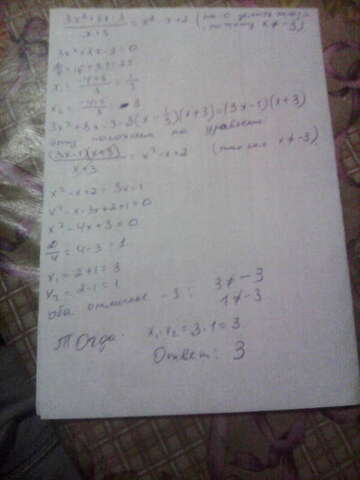 (3x²+8x-3)/(x+3) = x²-x+2 (на 0 делить нельзя,
поэтому x≠-3)
3x²+8x-3=0
D/4=16+9=25
x₁=(-4+5)/3=1/3
x₂=(-4-5)/3=-3
3x²+8x-3=3(x-1/3)(x+3)=(3x-1)(x+3)
уравнение
((3x-1)(x+3))/(x+3)=x²-x+2 (x≠-3)
x²-x+2=3x-1
x²-x-3x+2+1=0
x²-4x+3=0
D/4=4-3=1
x₁=2+1=3
x₂=2-1=1
оба отличные -3: 3≠-3
1≠-3
Тогда: x₁·x₂=3·1=3
Ответ: 3